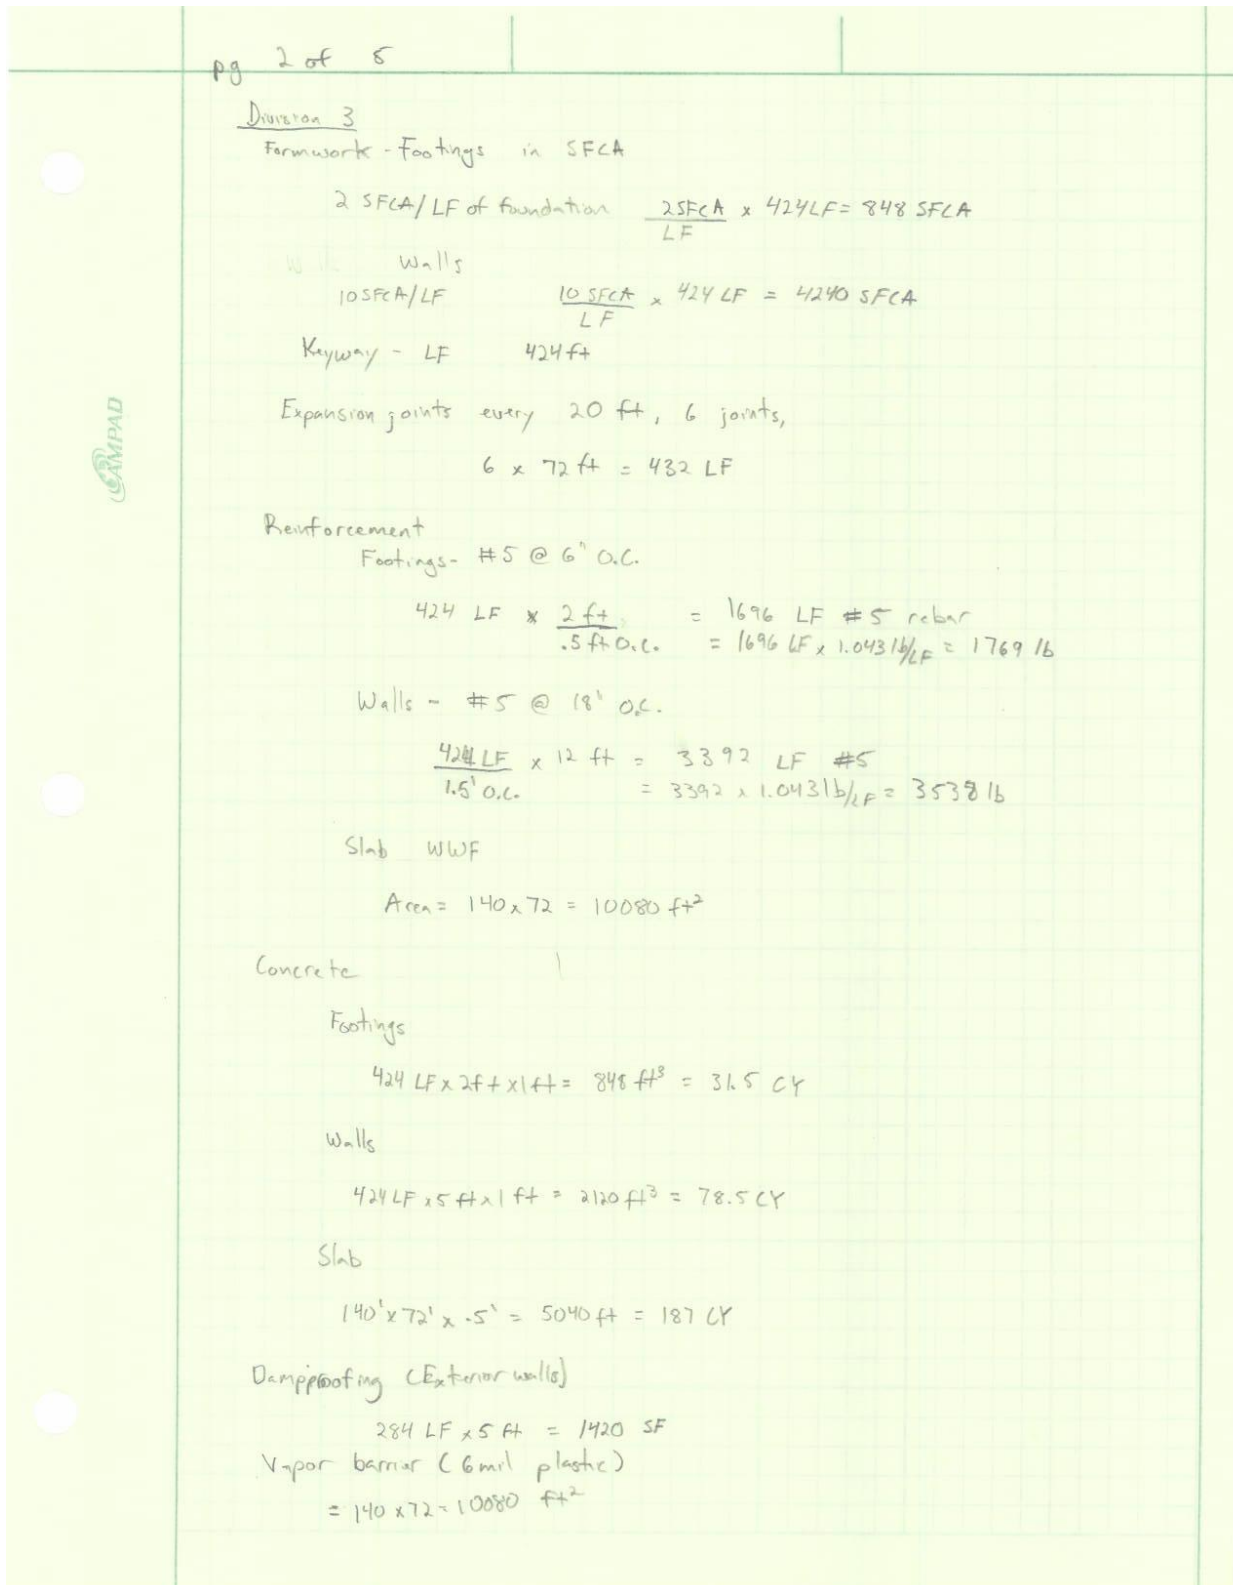 pg 2 of 5
Division 3
Formwork - Footings in SFCA
2 SFCA/LF of foundation 2SFCA/LF x 424LF = 848 SFCA
Walls
10 SFCA/LF 10 SFCA/LF x 424 LF = 4240 SFCA
Keyway - LF 424 ft
Expansion joints every 20 ft, 6 joints,
6 x 72 ft = 432 LF
CAMPAD
Reinforcement
Footings- #5 @ 6" O.C.
424 LF x 2 ft/.5 ft O.C. = 1696 LF #5 rebar
= 1696 LF x 1.043 lb/LF = 1769 lb
Walls - #5 @ 18' O.C.
424 LF/1.5' O.C. x 12 ft = 3392 LF #5
= 3392 x 1.043 lb/LF = 3538 lb
Slab WWF
Area = 140 x 72 = 10080 ft²
Concrete
Footings
424 LF x 2ft x 1ft = 848 ft³ = 31.5 CY
Walls
424 LF x 5 ft x 1 ft = 2120 ft³ = 78.5 CY
Slab
140' x 72' x .5' = 5040 ft = 187 CY
Dampproofing (Exterior walls)
284 LF x 5 ft = 1420 SF
Vapor barrier (6 mil plastic)
= 140 x 72 = 10080 ft²